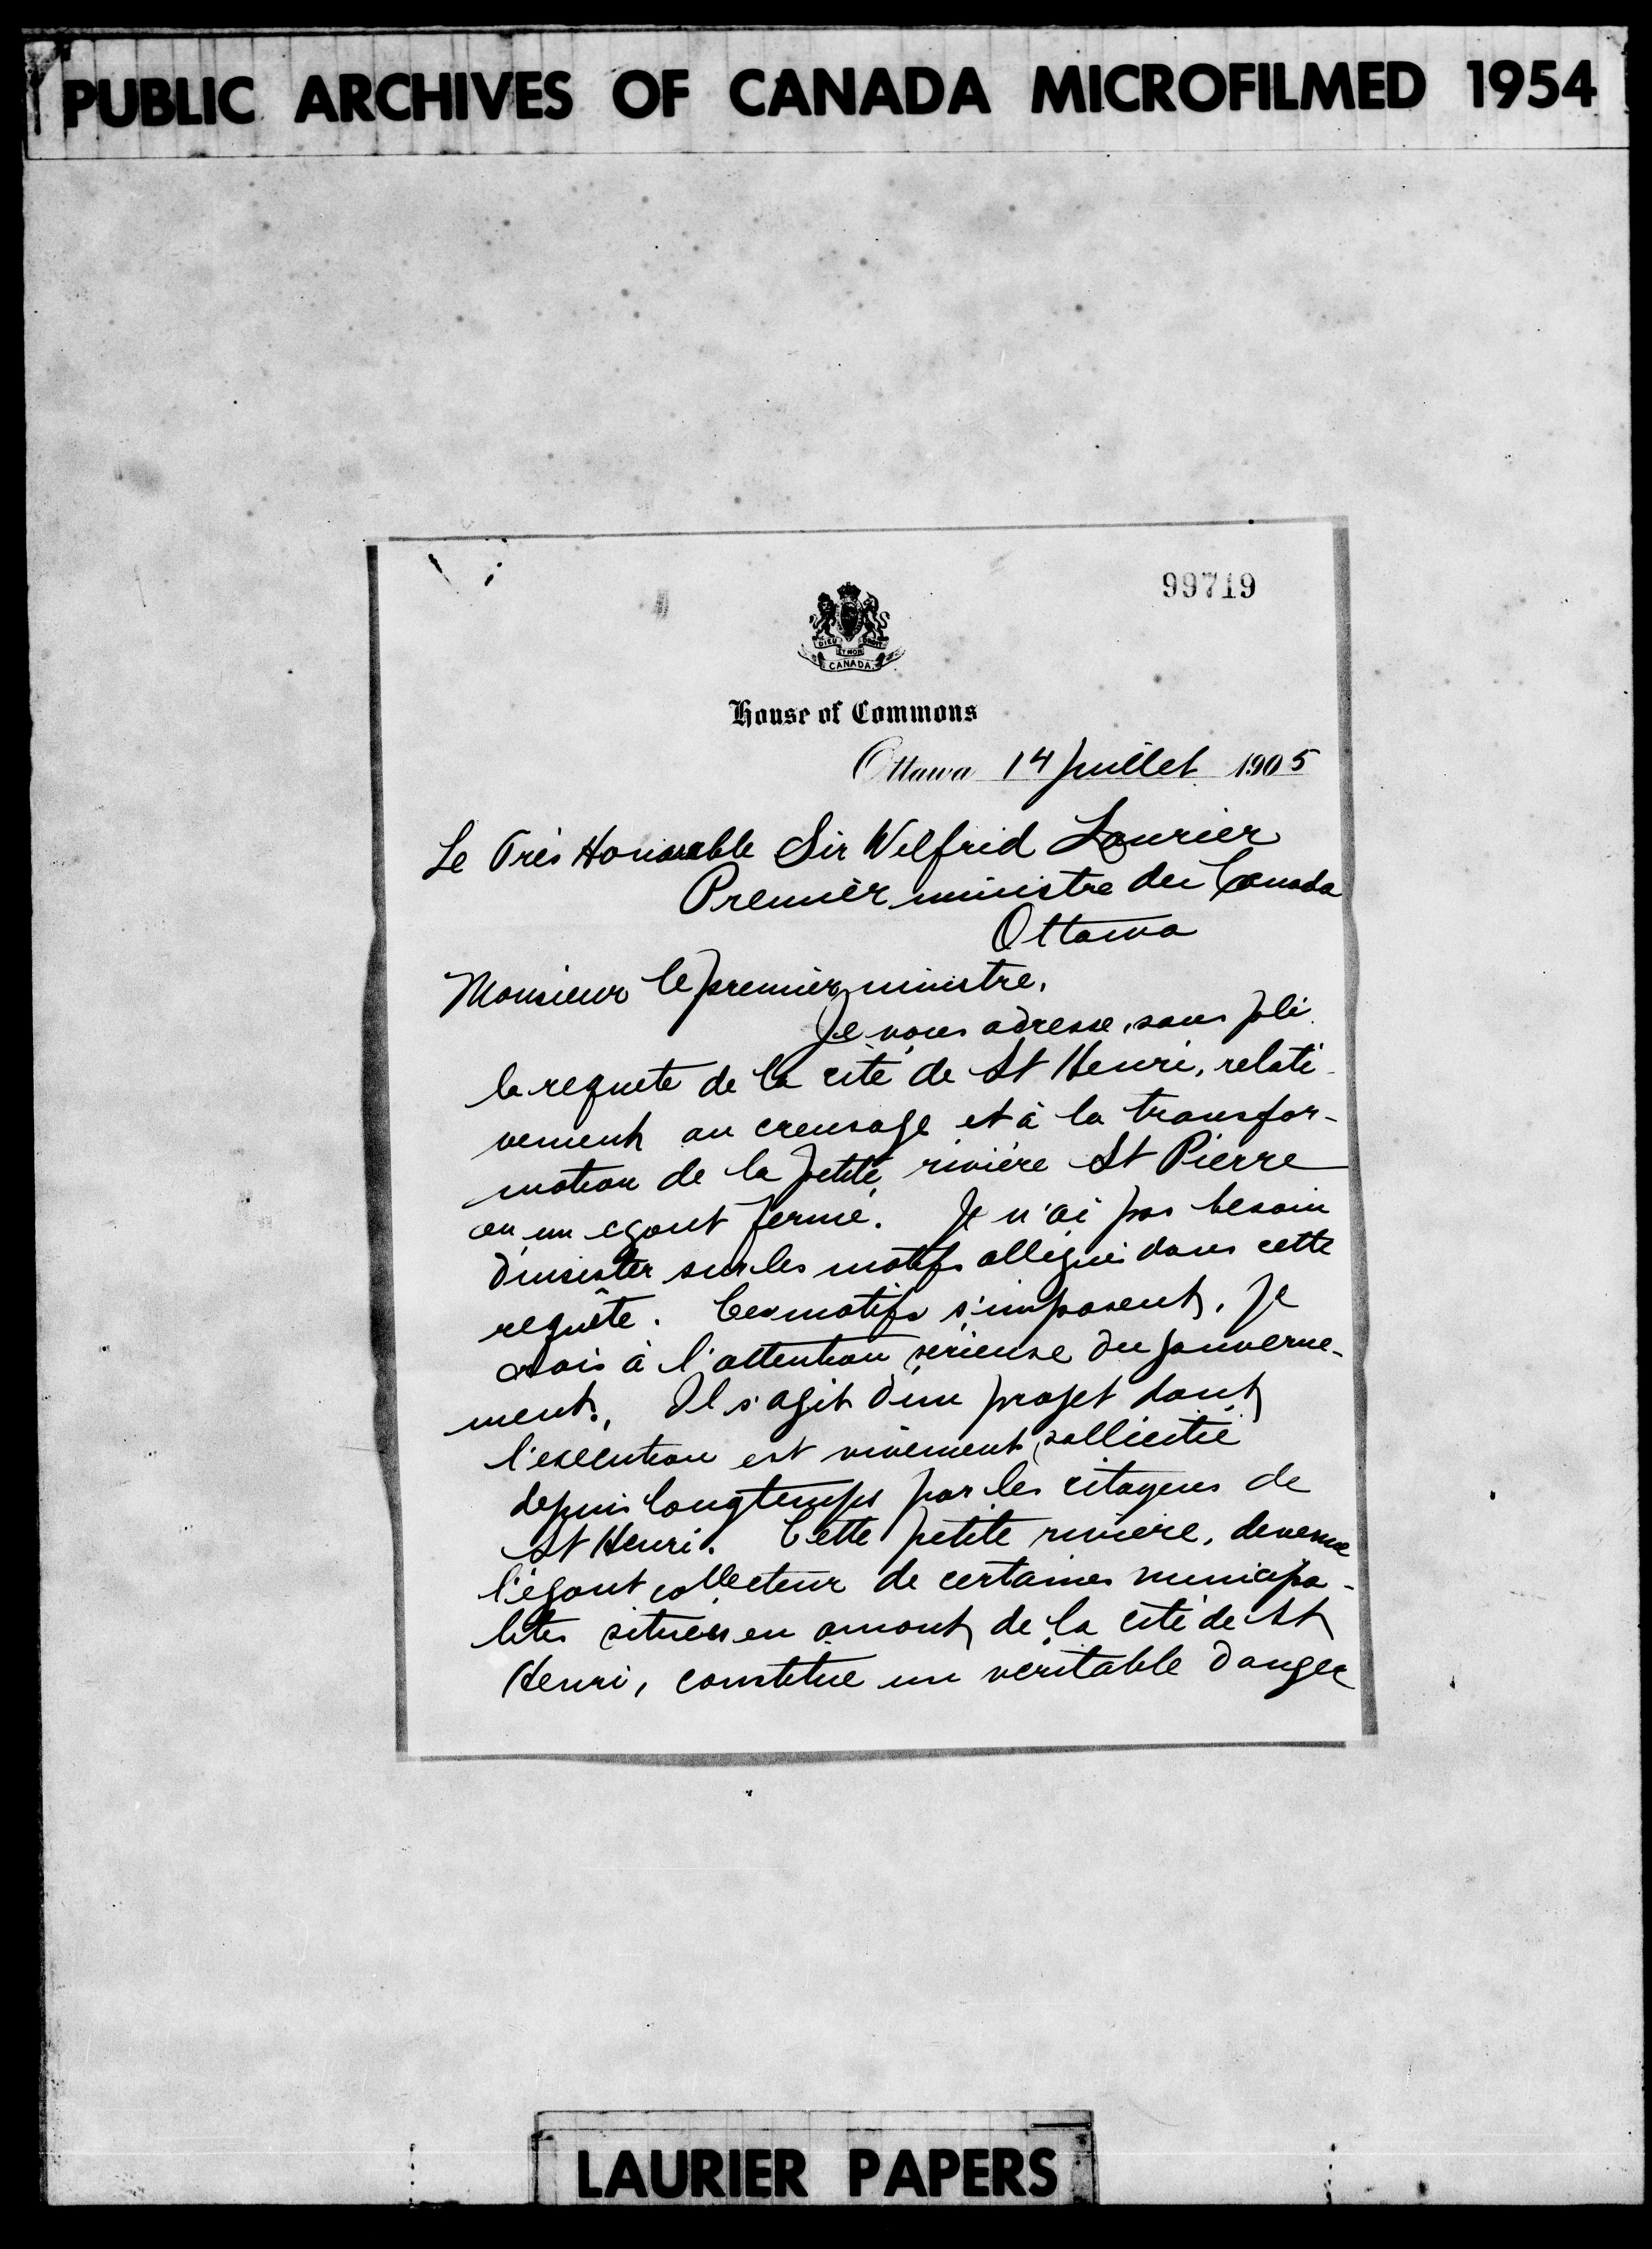 PUBLIC ARCHIVES OF CANADA MICROFILMED 1954
99719
DIEU ET MON DROIT
CANADA
House of Commons
Ottawa 14 juillet 1905
Le Très Honorable Sir Wilfrid Laurier
Premier ministre du Canada
Ottawa
Monsieur le premier ministre,
Je vous adresse, sous pli
la requete de la cité de St Henri, relati-
vement au creusage et à la transfor-
mation de la petite rivière St Pierre
en un egout fermé. Je n'ai pas besoin
d'insister sur les motifs allégués dans cette
requête. Ces motifs s'imposent, je
crois à l'attention sérieuse du gouverne-
ment. Il s'agit d'un projet dont
l'execution est vivement sollicitée
depuis longtemps par les citoyens de
St Henri. Cette petite riviere, devenue
l'égout collecteur de certaines municipa-
lités situées en amont de la cité de St
Henri, constitue un veritable danger
LAURIER PAPERS